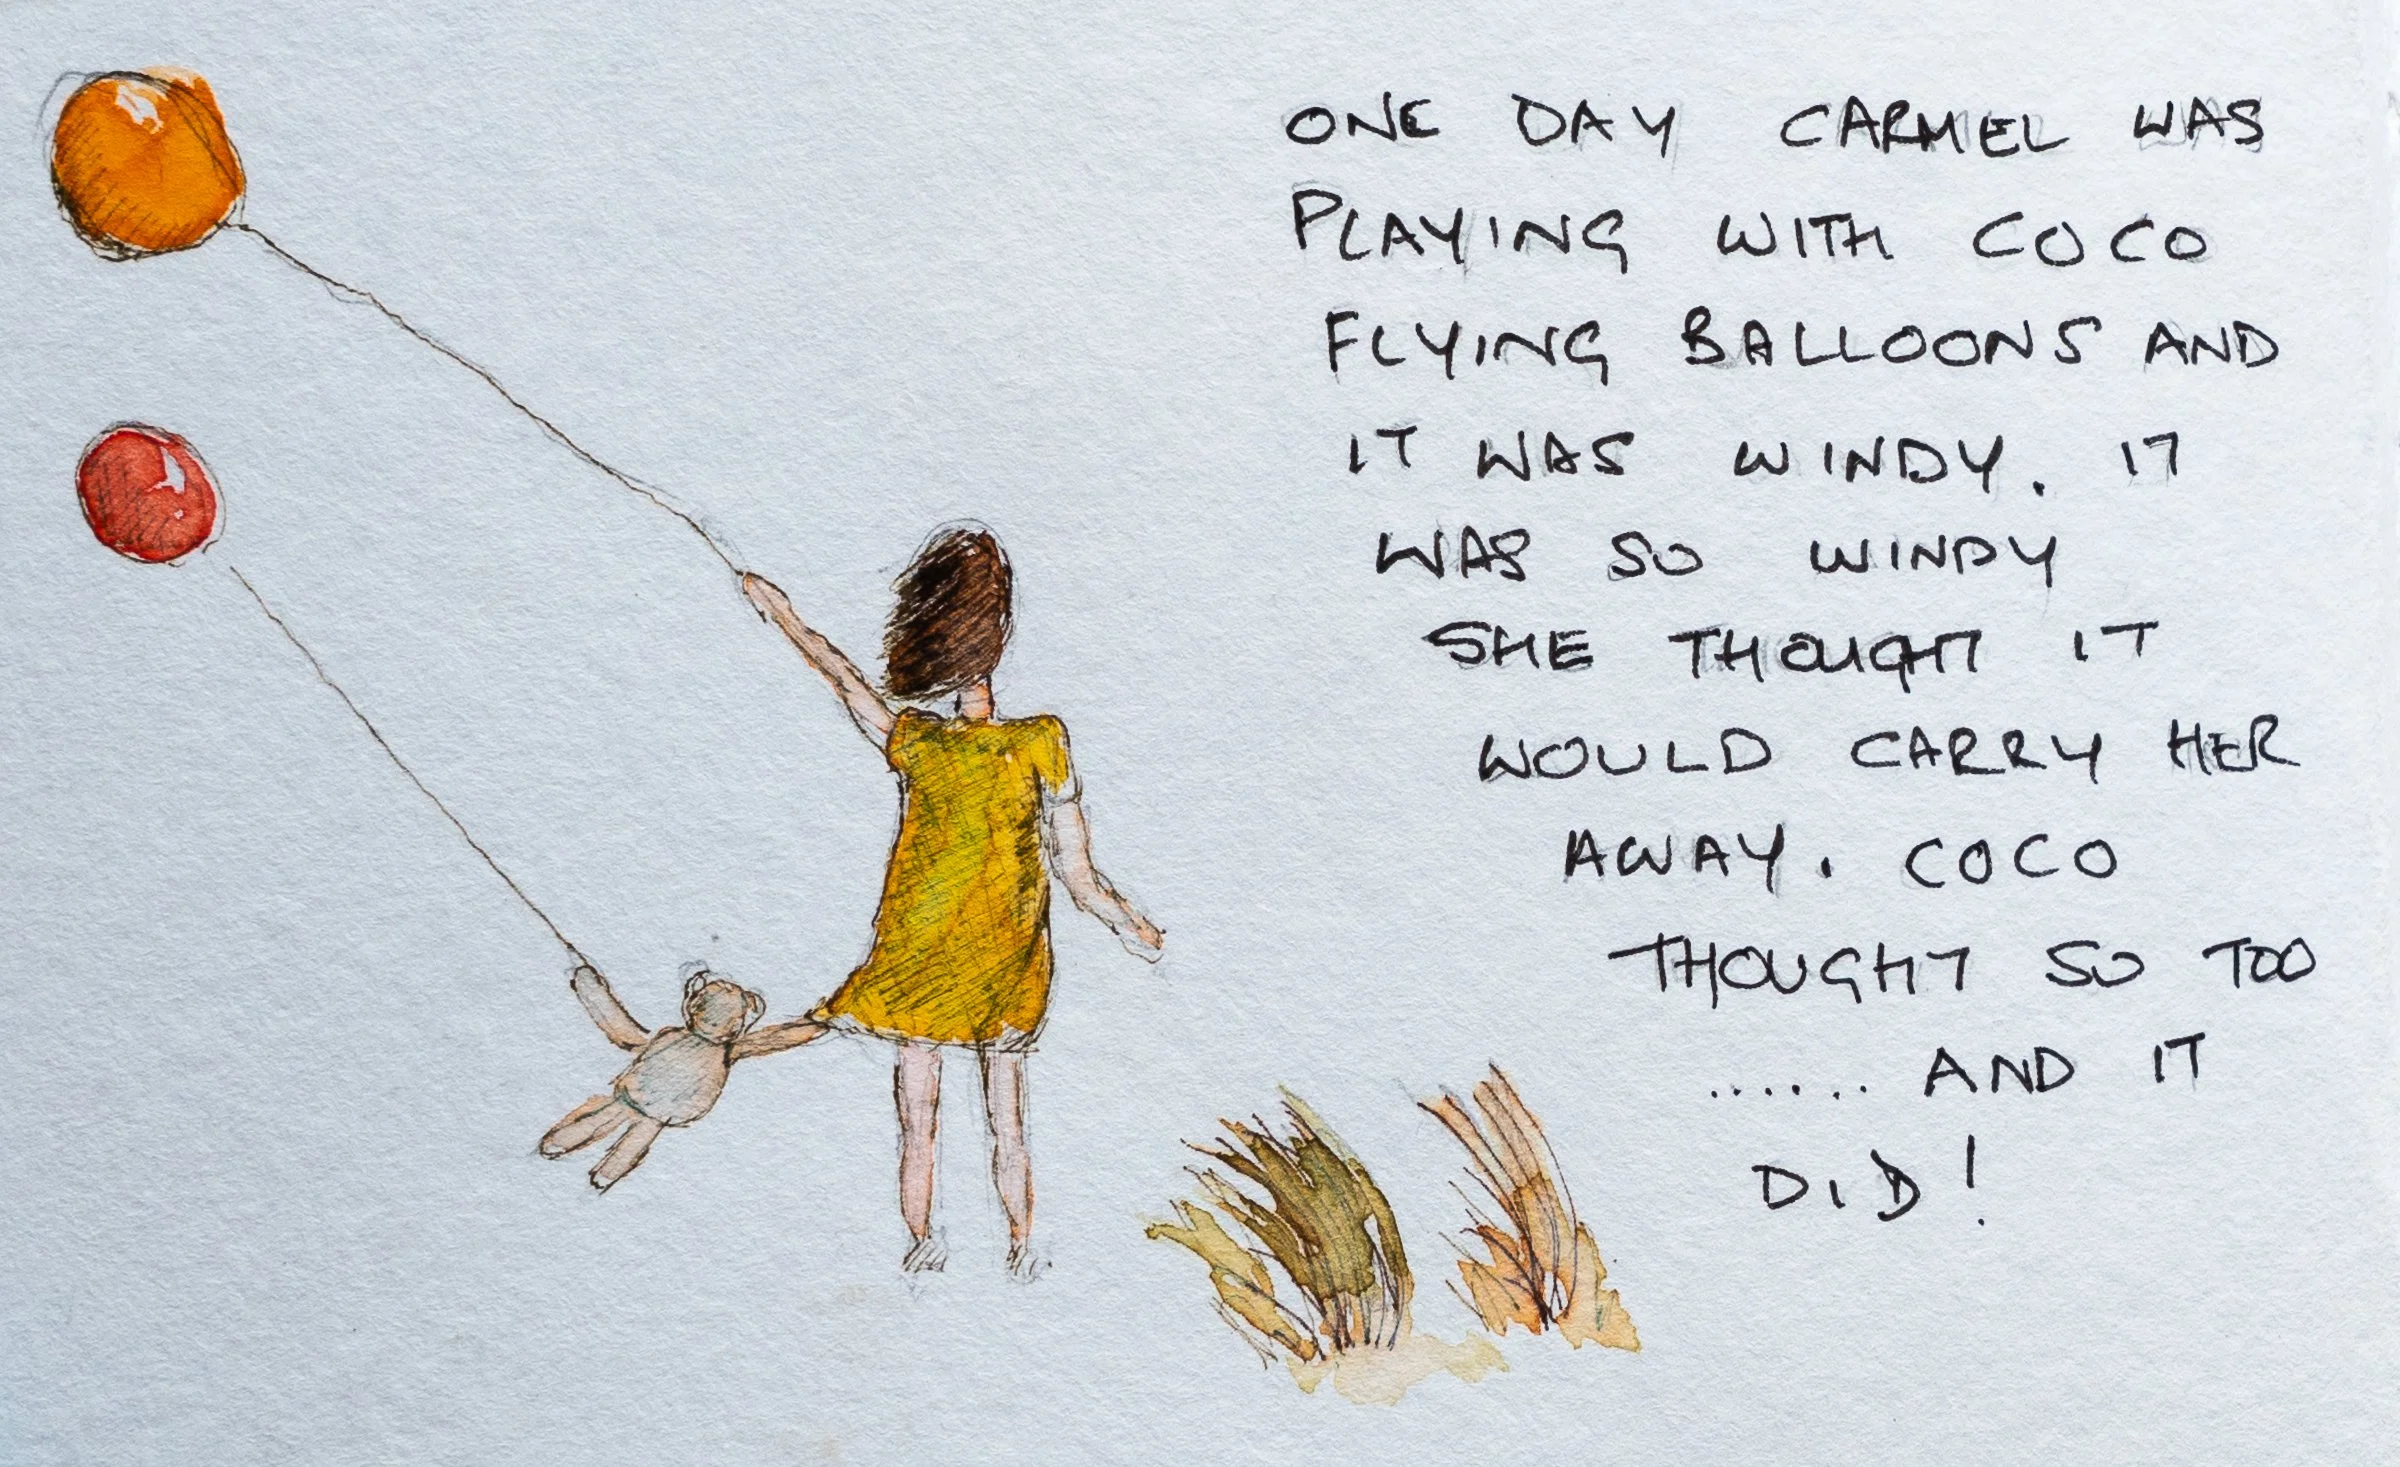 ONE DAY CARMEL WAS
PLAYING WITH COCO
FLYING BALLOONS AND
IT WAS WINDY. IT
WAS SO WINDY
SHE THOUGHT IT
WOULD CARRY HER
AWAY. COCO
THOUGHT SO TOO
...... AND IT
DID!